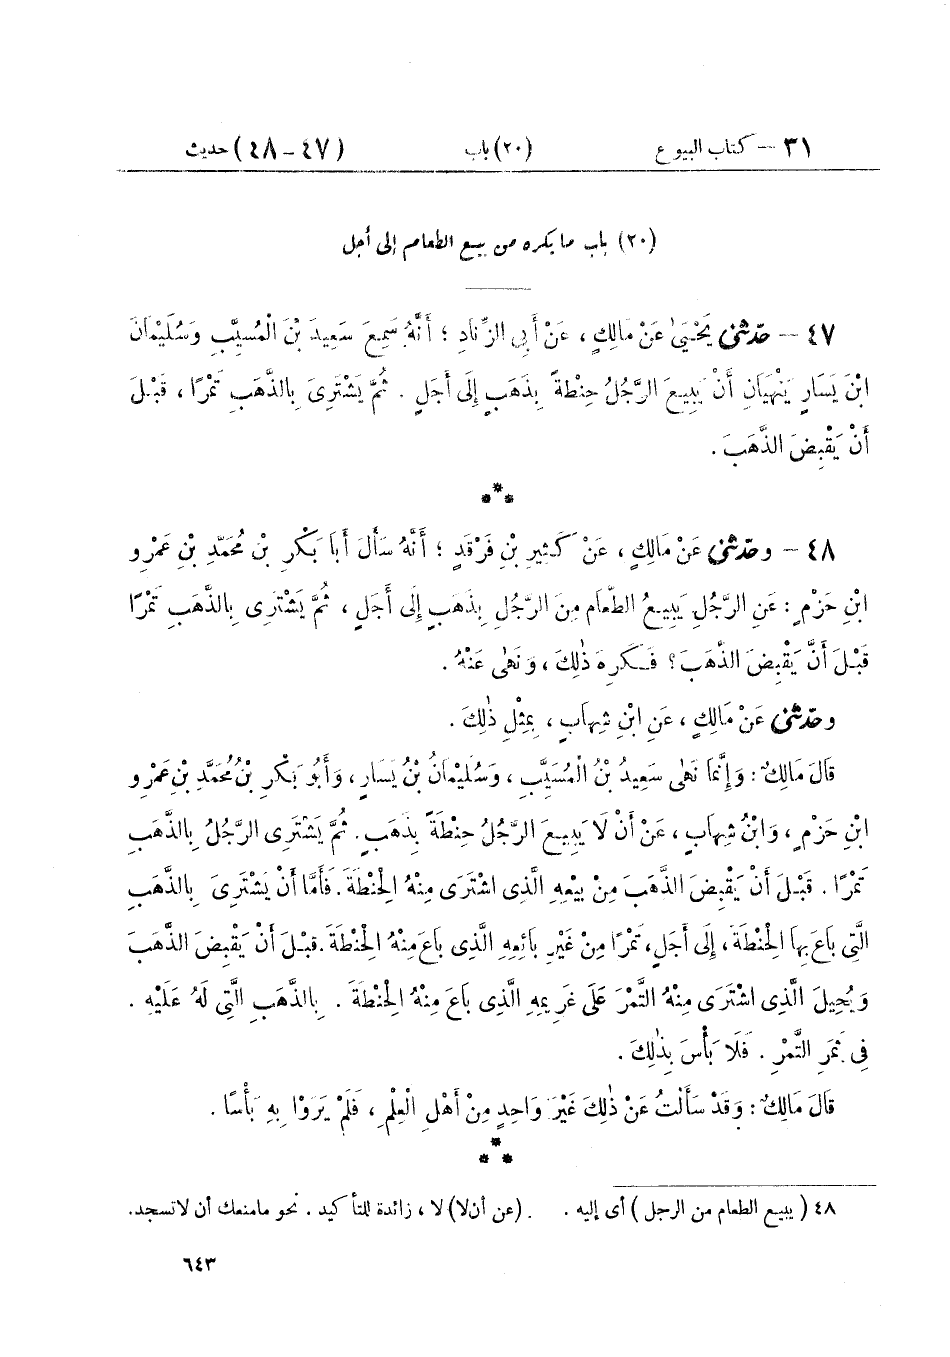 ٣١ – كتاب البيوع (٢٠) باب (٤٧ – ٤٨) حديث
(٢٠) باب ما يكره من بيع الطعام إلى أجل
٤٧ – حدّثنى يَحْيَىٰ عَنْ مَالِكٍ ، عَنْ أَبِى الزِّنَادِ ؛ أَنَّهُ سَمِعَ سَعِيدَ بْنَ الْمُسَيَّبِ وَسُلَيْمَانَ
ابْنَ يَسَارٍ يَنْهَيَانِ أَنْ يَبِيعَ الرَّجُلُ حِنْطَةً بِذَهَبٍ إِلَى أَجَلٍ . ثُمَّ يَشْتَرِىَ بِالذَّهَبِ تَمْرًا ، قَبْلَ
أَنْ يَقْبِضَ الذَّهَبَ .
٤٨ – وحدّثنى عَنْ مَالِكٍ ، عَنْ كَثِيرِ بْنِ فَرْقَدٍ ؛ أَنَّهُ سَأَلَ أَبَا بَكْرِ بْنَ مُحَمَّدِ بْنِ عَمْرِو
ابْنِ حَزْمٍ : عَنِ الرَّجُلِ يَبِيعُ الطَّعَامَ مِنَ الرَّجُلِ بِذَهَبٍ إِلَى أَجَلٍ ، ثُمَّ يَشْتَرِى بِالذَّهَبِ تَمْرًا
قَبْلَ أَنْ يَقْبِضَ الذَّهَبَ ؟ فَكَرِهَ ذٰلِكَ ، وَنَهَى عَنْهُ .
وحدّثنى عَنْ مَالِكٍ ، عَنِ ابْنِ شِهَابٍ ، بِمِثْلِ ذٰلِكَ .
قَالَ مَالِكٌ : وَإِنَّمَا نَهَى سَعِيدُ بْنُ الْمُسَيَّبِ ، وَسُلَيْمَانُ بْنُ يَسَارٍ ، وَأَبُو بَكْرِ بْنُ مُحَمَّدِ بْنِ عَمْرِو
ابْنِ حَزْمٍ ، وَابْنُ شِهَابٍ ، عَنْ أَنْ لَا يَبِيعَ الرَّجُلُ حِنْطَةً بِذَهَبٍ . ثُمَّ يَشْتَرِى الرَّجُلُ بِالذَّهَبِ
تَمْرًا . قَبْلَ أَنْ يَقْبِضَ الذَّهَبَ مِنْ بَيْعِهِ الَّذِى اشْتَرَى مِنْهُ الْحِنْطَةَ . فَأَمَّا أَنْ يَشْتَرِىَ بِالذَّهَبِ
الَّتِى بَاعَ بِهَا الْحِنْطَةَ ، إِلَى أَجَلٍ ، تَمْرًا مِنْ غَيْرِ بَائِعِهِ الَّذِى بَاعَ مِنْهُ الْحِنْطَةَ . قَبْلَ أَنْ يَقْبِضَ الذَّهَبَ
وَيُحِيلَ الَّذِى اشْتَرَى مِنْهُ التَّمْرَ عَلَى غَرِيمِهِ الَّذِى بَاعَ مِنْهُ الْحِنْطَةَ . بِالذَّهَبِ الَّتِى لَهُ عَلَيْهِ .
فِى ثَمَرِ التَّمْرِ . فَلَا بَأْسَ بِذٰلِكَ .
قَالَ مَالِكٌ : وَقَدْ سَأَلْتُ عَنْ ذٰلِكَ غَيْرَ وَاحِدٍ مِنْ أَهْلِ الْعِلْمِ ، فَلَمْ يَرَوْا بِهِ بَأْسًا .
٤٨ ( يبيع الطعام من الرجل ) أى إليه . (عن أن لا) لا ، زائدة للتأكيد . نحو مامنعك أن لا تسجد .
٦٤٣